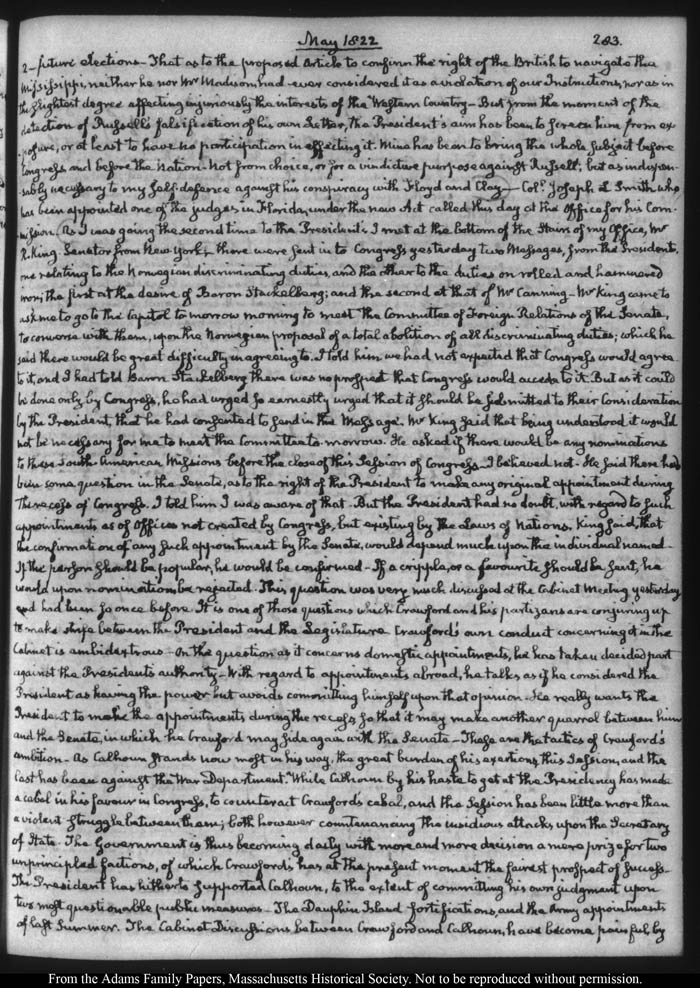 May 1822
283.
2 – future elections – That as to the proposed Article to confirm the right of the British to navigate the
Mississippi, neither he nor Mr Madison, had ever considered it as a violation of our Instructions, nor as in
the slightest degree affecting injuriously the interests of the Western Country – But from the moment of the
detection of Russell's falsification of his own Letter, the President's aim has been to screen him from ex-
posure, or at least to have no participation in effecting it. Mine has been to bring the whole subject before
Congress and before the Nation – Not from choice, or for a vindictive purpose against Russell; but as indispen-
sably necessary to my self-defence against his conspiracy with Floyd and Clay – Col. Joseph L Smith who
has been appointed one of the judges in Florida, under the new Act called this day at the Office for his Com-
mission. As I was going the second time to the President's I met at the bottom of the Stairs of my Office, Mr
R. King. Senator from New York; there were sent in to Congress yesterday two Messages, from the President,
one relating to the Norwegian discriminating duties, and the other to the duties on rolled and hammered
iron; the first at the desire of Baron Stackelberg; and the second at that of Mr Canning – Mr King came to
ask me to go to the Capitol to morrow morning to meet the Committee of Foreign Relations of the Senate,
to converse with them, upon the Norwegian proposal of a total abolition of all discriminating duties; which he
said there would be great difficulty in agreeing to. I told him we had not expected that Congress would agree
to it, and I had told Baron Stackelberg there was no prospect that Congress would accede to it. But as it could
be done only by Congress, he had urged so earnestly urged that it should be submitted to their Consideration
by the President, that he had consented to send in the Message. Mr King said that being understood it would
not be necessary for me to meet the Committee to-morrow. He asked if there would be any nominations
to these South-American Missions before the close of this Session of Congress – I believed not – He said there had
been some question in the Senate, as to the right of the President to make any original appointment during
the recess of Congress. I told him I was aware of that – But the President had no doubt, with regard to such
appointments as of Offices not created by Congress, but existing by the Laws of Nations. King said, that
the confirmation of any such appointment by the Senate, would depend much upon the individual named –
If the person should be popular, he would be confirmed – If a cripple, or a favourite should be sent, he
would upon nomination be rejected. This question was very much discussed at the Cabinet Meeting yesterday
and had been so once before. It is one of those questions which Crawford and his partizans are conjuring up
to make strife between the President and the Legislature Crawford's own conduct concerning it in the
Cabinet is ambidextrous – On the question as it concerns domestic appointments, he has taken decided part
against the Presidents authority – With regard to appointments abroad, he talks as if he considered the
President as having the power but avoids committing himself upon that opinion – He really wants the
President to make the appointments during the recess so that it may make another quarrel between him
and the Senate, in which he Crawford may side again with the Senate – These are the tactics of Crawford's
ambition – As Calhoun stands now most in his way, the great burden of his exertions this Session, and the
last has been against the War Department. While Calhoun by his haste to get at the Presidency has made
a cabal in his favour in Congress, to counteract Crawford's cabal, and the Session has been little more than
a violent struggle between them; both however countenancing the insidious attacks upon the Secretary
of State. The Government is thus becoming daily with more and more decision a mere prize for two
unprincipled factions, of which Crawford's has at the present moment the fairest prospect of success –
The President has hitherto supported Calhoun, to the extent of committing his own judgment upon
two most questionable public measures – The Dauphin Island fortifications, and the Army appointments
of last Summer. The Cabinet Discussions between Crawford and Calhoun, have become painful, by
From the Adams Family Papers, Massachusetts Historical Society. Not to be reproduced without permission.